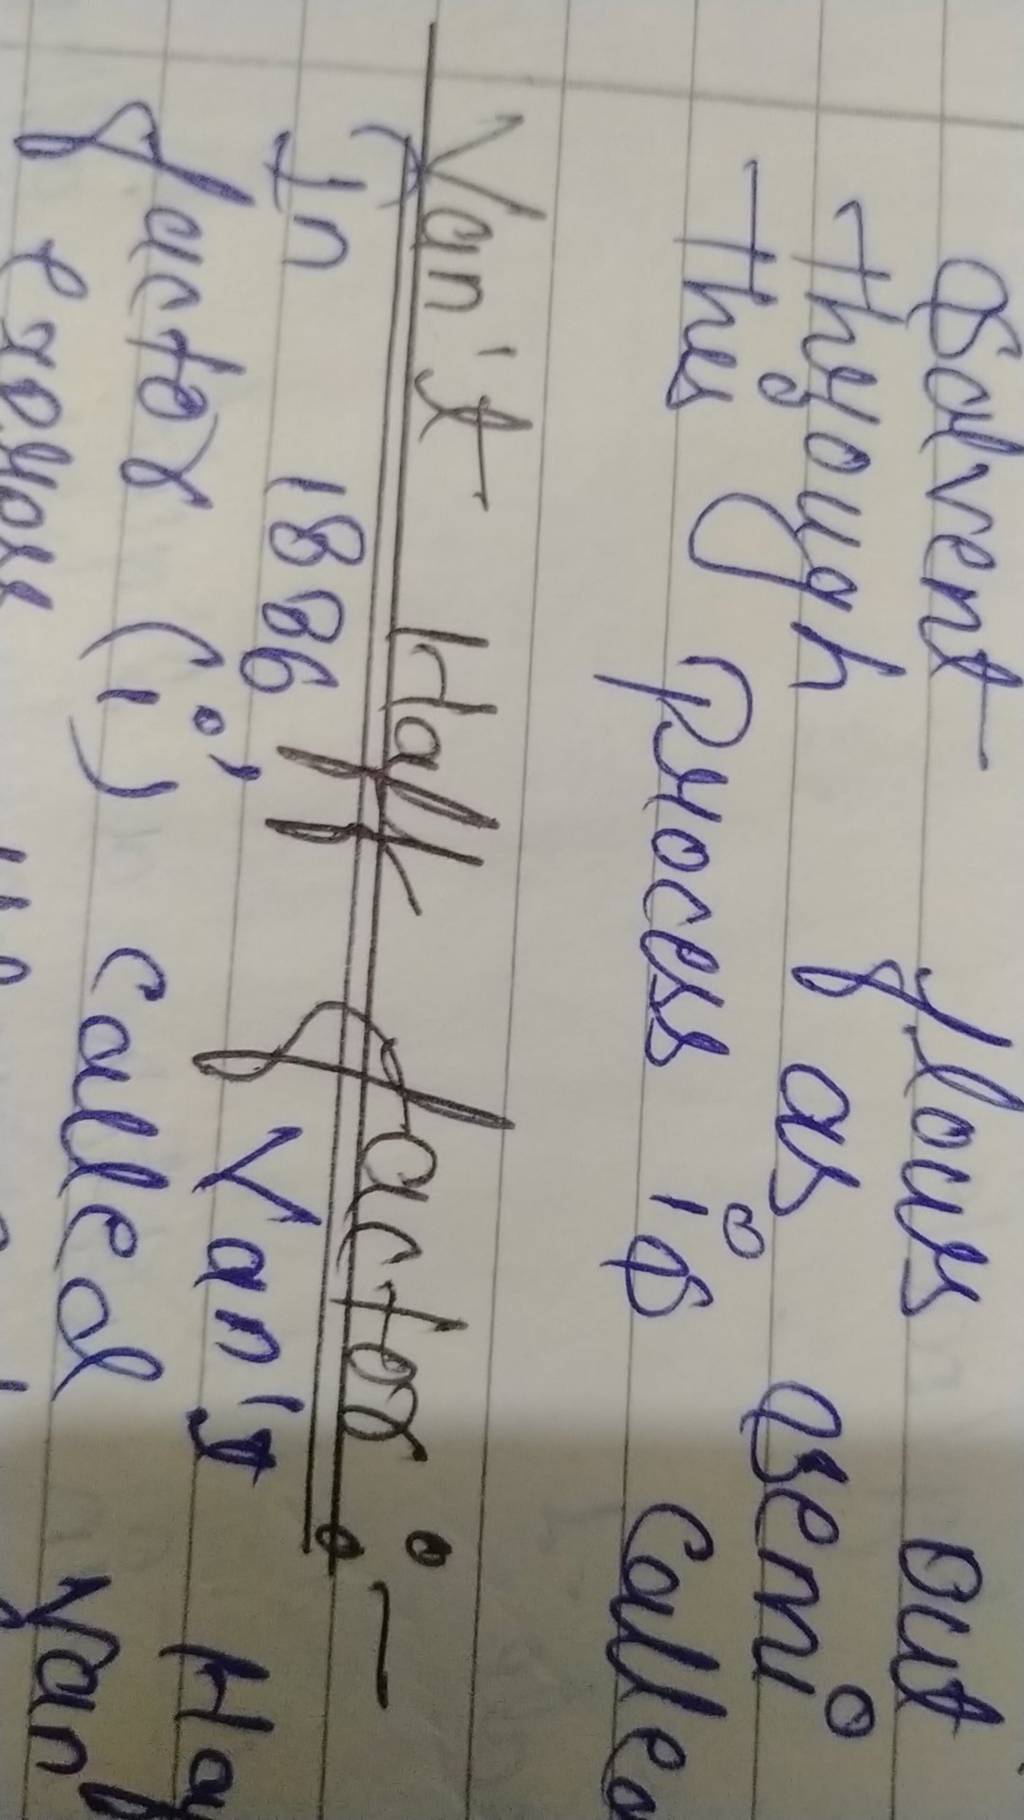 Solvent flows out
through as a semi
this process is Called
Van't Haff factor :-
In 1886, Van't
factor (i) called Van